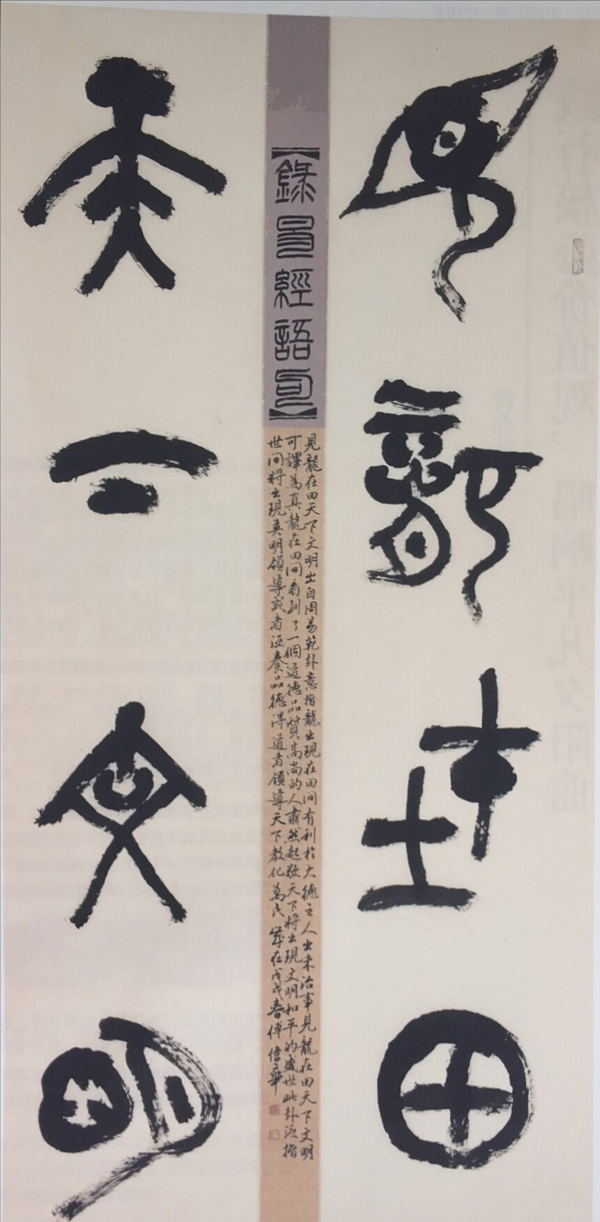 見龍在田
天下文明
【錄易經語句】
見龍在田天下文明出自周易乾卦意指龍出現在田间有利於大德之人出来治事見龍在田天下文明
可譯為真龍在田间看到了一個道德品質高尚的人肅然起敬天下將出現文明和平的盛世此卦泛指
世间將出現英明領導或者涵養品德得道者領導天下教化萬民歲在戊戌春傅